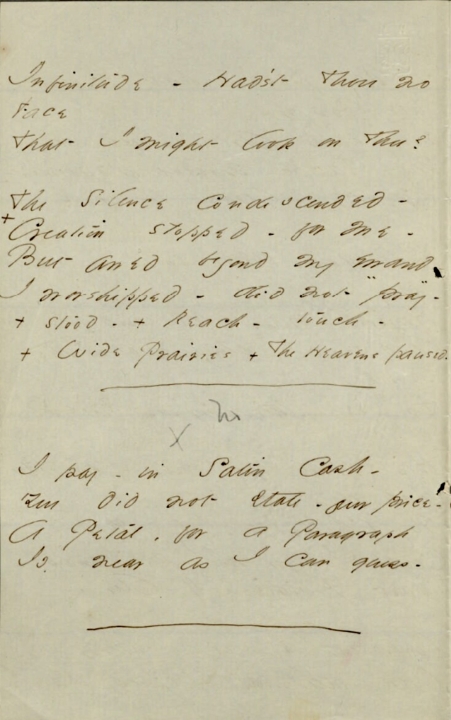 Infinitude - Had'st Thou no
Face
That I might look on Thee?
The Silence condescended -
+ Creation stopped - for me -
But awed beyond my errand
I worshipped - did not "pray" -
+ stood - + Reach - touch -
+ Wide Prairies + The Heavens paused -
X
I pay - in Satin Cash -
You did not state - your price -
A Petal, for a Paragraph
Is near as I can guess -